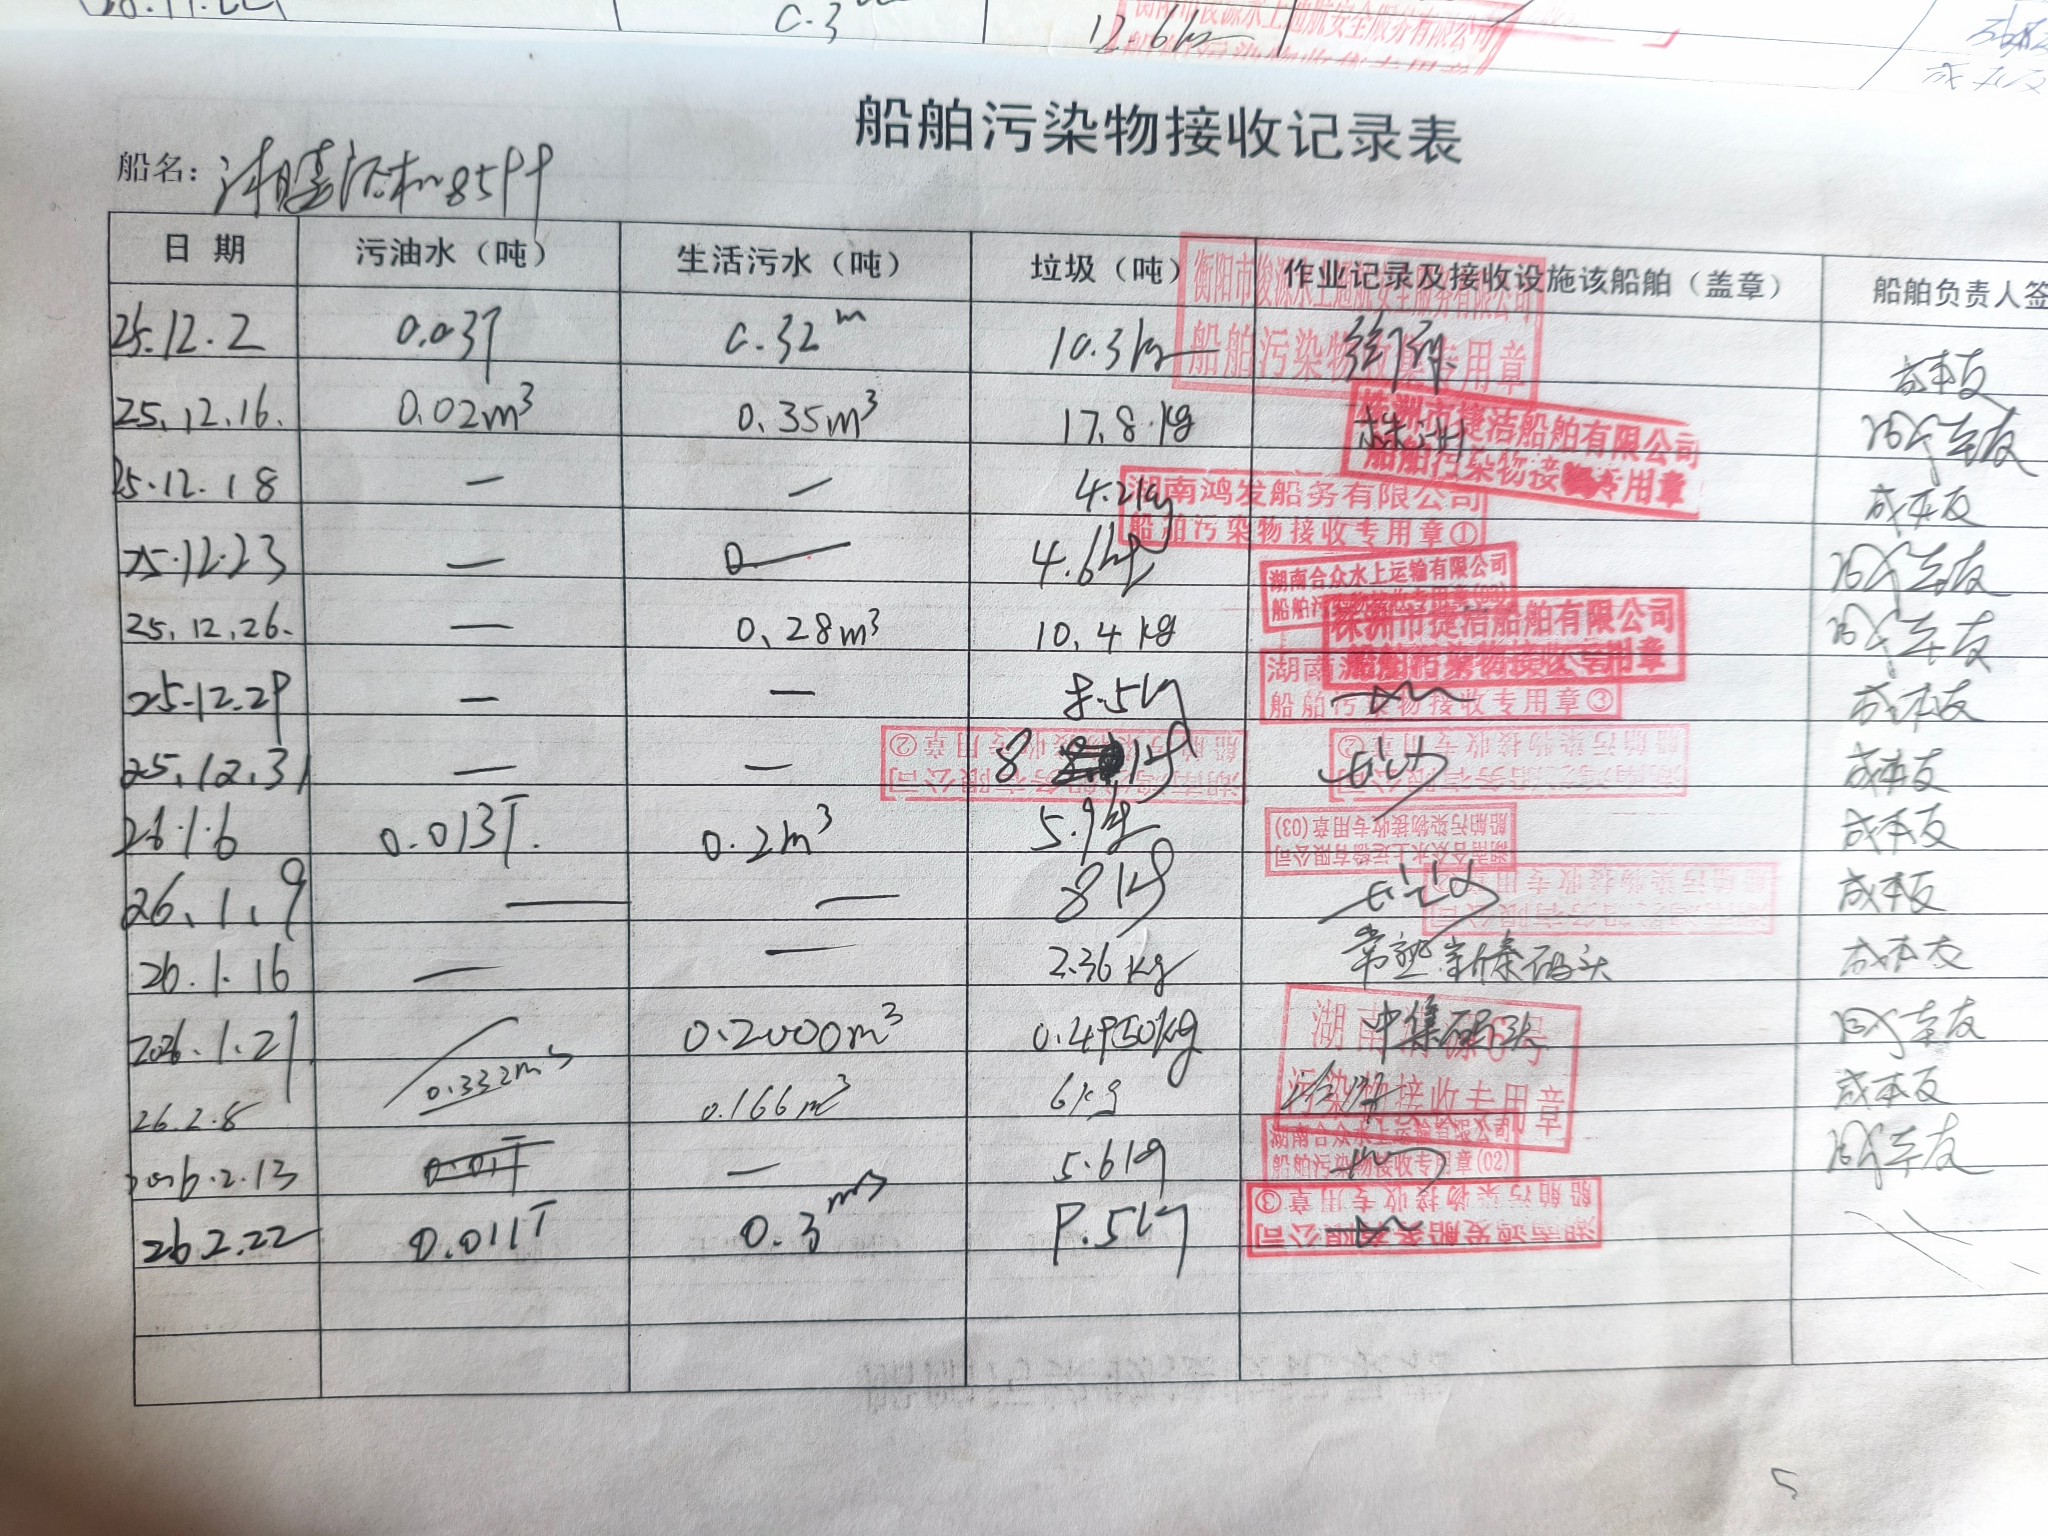 12.6kg
船舶污染物接收记录表
船名：
日期 污油水（吨） 生活污水（吨） 垃圾（吨） 作业记录及接收设施该船舶（盖章） 船舶负责人签
衡阳市俊源水上通航安全服务有限公司
船舶污染物收集专用章
25.12.2 0.03T 0.32m 10.3kg 成本友
25.12.16. 0.02m³ 0.35m³ 17.8.kg 株洲
株洲市捷洁船舶有限公司
船舶污染物接收专用章
25.12.18 — — 4.2kg 成本友
湖南鸿发船务有限公司
船舶污染物接收专用章①
25.12.23 — 0. — 4.6kg
湖南合众水上运输有限公司
25.12.26. — 0.28m³ 10.4kg
株洲市捷洁船舶有限公司
船舶污染物接收专用章
25.12.29 — — 8.5kg 成本友
湖南
船舶污染物接收专用章③
25.12.31 — — 8 kg 成本友
船舶污染物接收专用章②
26.1.6 0.013T. 0.2m³ 5.9kg 成本友
湖南合众水上运输有限公司
船舶污染物接收专用章(03)
26.1.9 — — 8kg 成本友
26.1.16 — — 2.36kg 常熟新泰码头 成本友
2026.1.21. 0.2000m³ 0.4950kg 中集码头
26.2.8 0.332m³ 0.166m³ 6kg 成本友
污染物接收专用章
2026.2.13 — 5.6kg
湖南合众水上运输有限公司
船舶污染物接收专用章(02)
26.2.22 0.011T 0.3m³ 9.5kg
湖南鸿发船务有限公司
船舶污染物接收专用章③
5